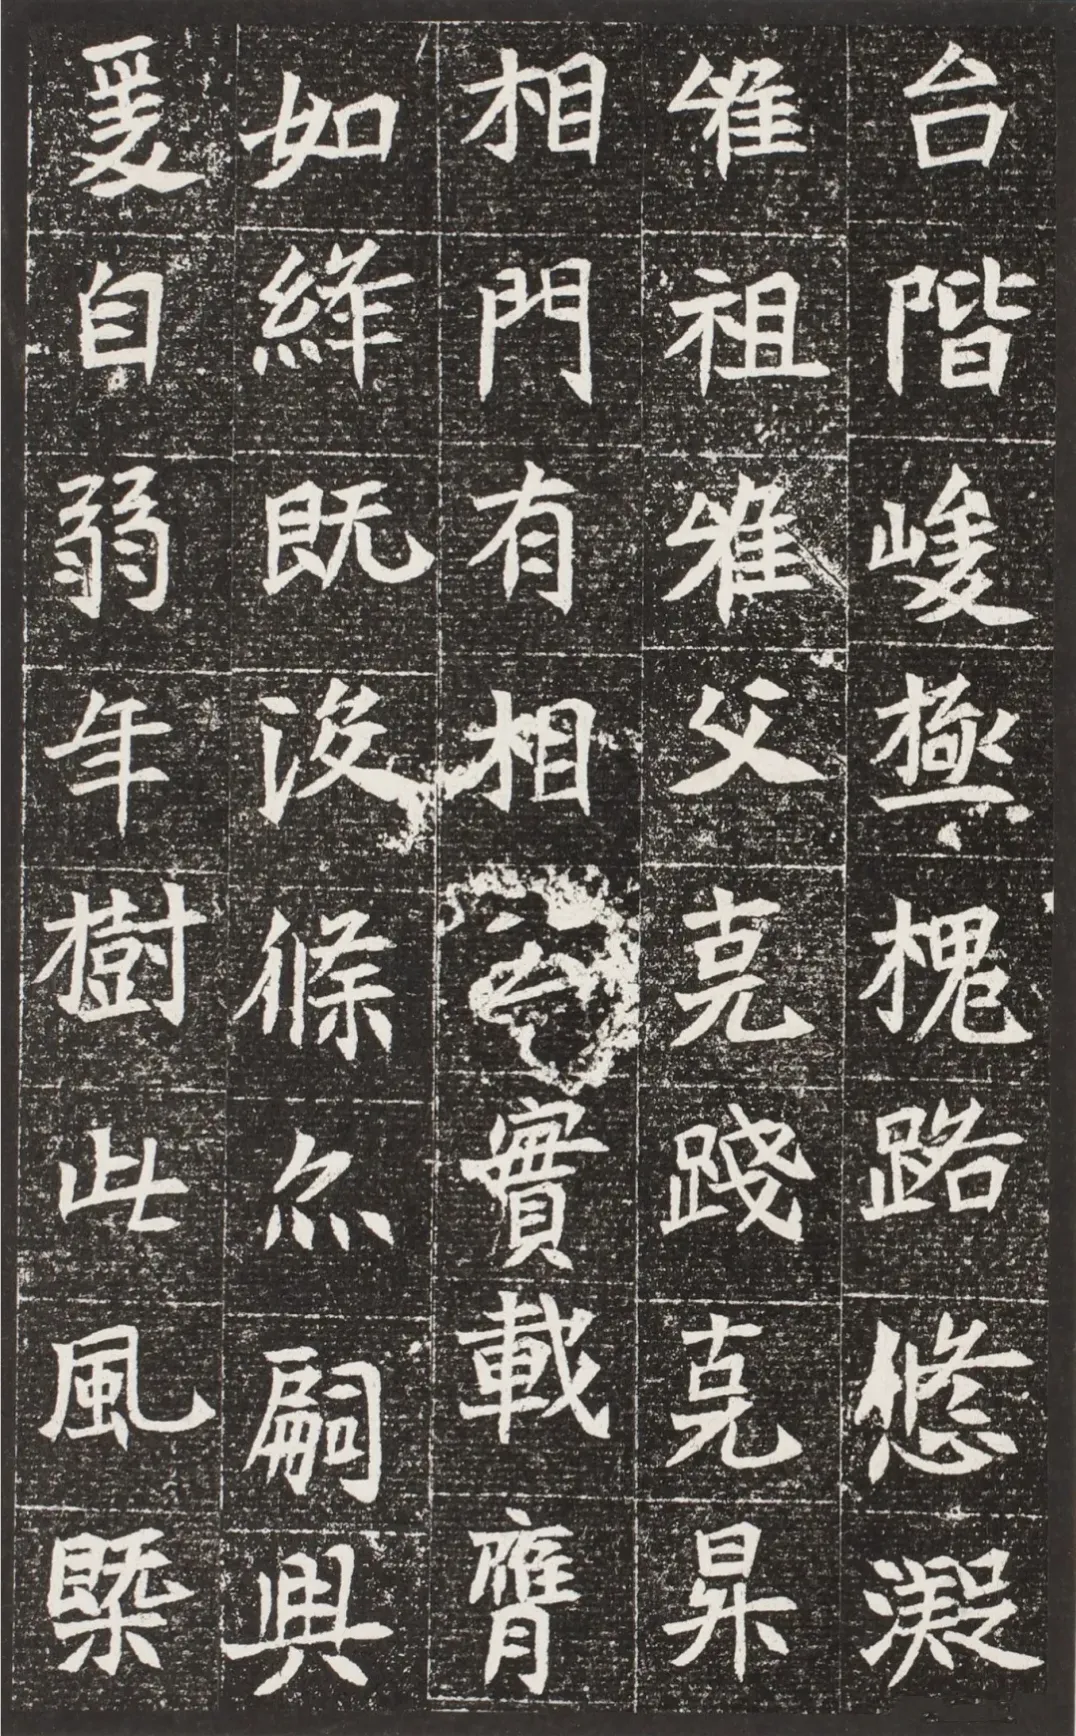 台階峻極槐路悠凝
惟祖惟父克踐克昇
相門有相實載膺
如絳既没條亦嗣興
爰自弱年樹此風槩